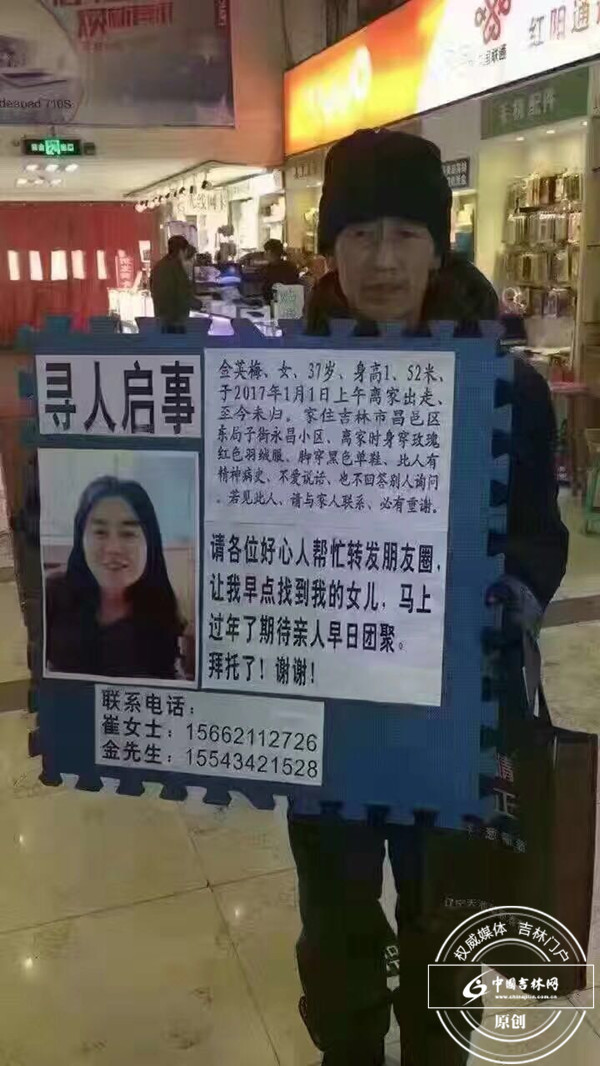 deapad 710S
红阳通
中国联通
手机配件
寻人启事
金英梅、女、37岁、身高1、52米、
于2017年1月1日上午离家出走、
至今未归。家住吉林市昌邑区
东局子街永昌小区、离家时身穿玫瑰
红色羽绒服、脚穿黑色单鞋、此人有
精神病史、不爱说话、也不回答别人询问
、若见此人、请与家人联系、必有重谢。
请各位好心人帮忙转发朋友圈,
让我早点找到我的女儿,马上
过年了期待亲人早日团聚。
拜托了!谢谢!
联系电话:
崔女士:15662112726
金先生:15543421528
情
正
权威媒体 吉林门户
中国吉林网
www.chinajilin.com.cn
原创